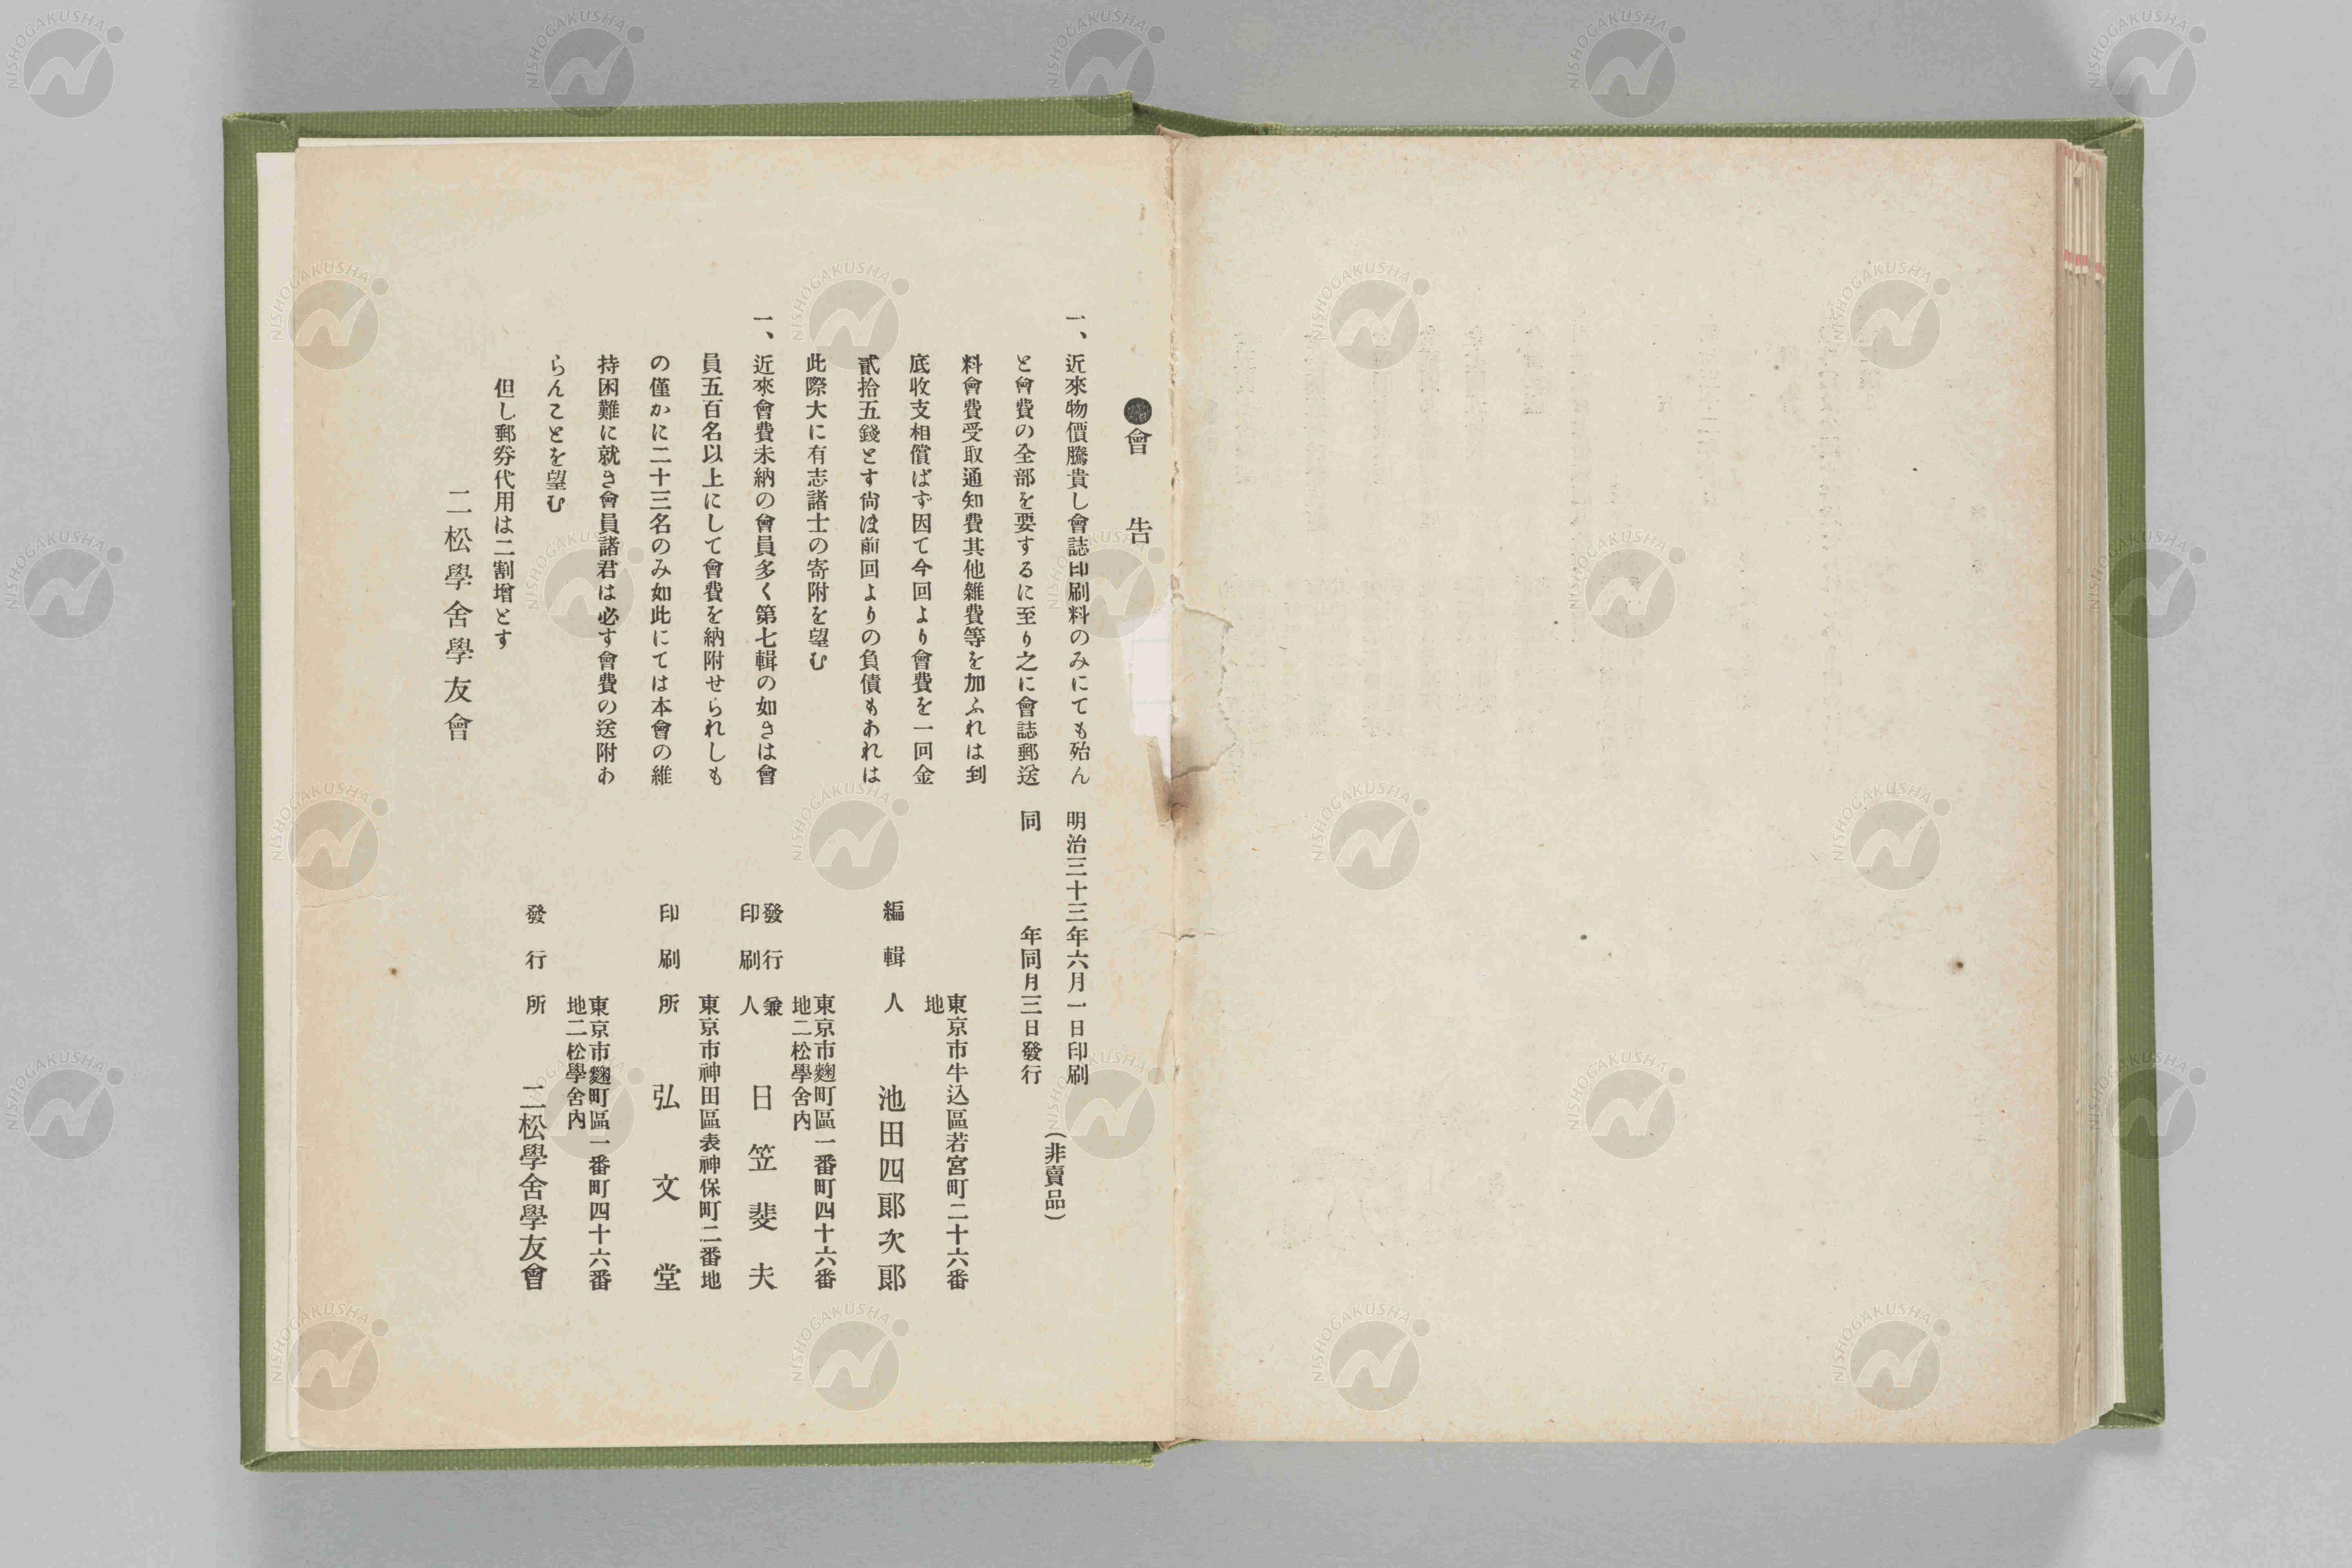 ●會告
一、近來物價騰貴し會誌印刷料のみにても殆ん
と會費の全部を要するに至り之に會誌郵送
料會費受取通知費其他雜費等を加ふれは到
底收支相償ばず因て今回より會費を一回金
貳拾五錢とす尙ほ前回よりの負債もあれは
此際大に有志諸士の寄附を望む
一、近來會費未納の會員多く第七輯の如きは會
員五百名以上にして會費を納附せられしも
の僅かに二十三名のみ如此にては本會の維
持困難に就き會員諸君は必す會費の送附あ
らんことを望む
但し郵券代用は二割增とす
二松學舍學友會
明治三十三年六月一日印刷
同年同月三日發行
(非賣品)
東京市牛込區若宮町二十六番
地
編輯人 池田四郞次郞
東京市麴町區一番町四十六番
地二松學舍內
發行兼
印刷人 日笠斐夫
東京市神田區表神保町二番地
印刷所 弘文堂
東京市麴町區一番町四十六番
地二松學舍內
發行所 二松學舍學友會
NISHOGAKUSHA